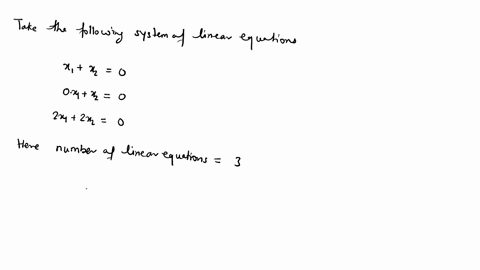 Take the following system of linear equations
x₁ + x₂ = 0
0x₁ + x₂ = 0
2x₁ + 2x₂ = 0
Here number of linear equations = 3